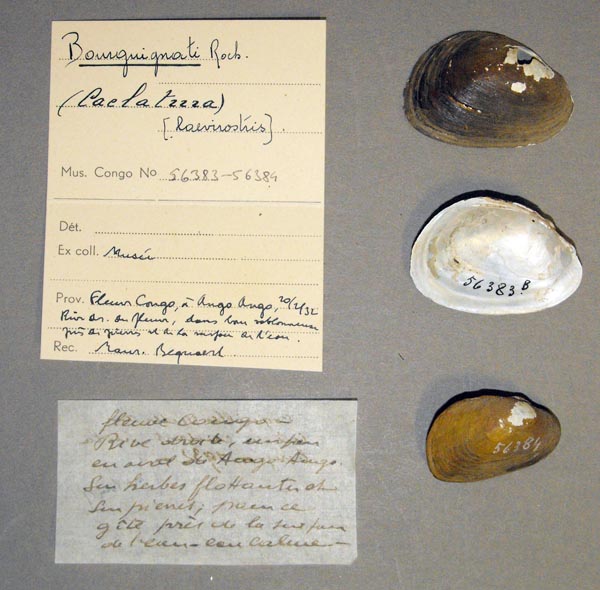 Bourguignati Roch.
(Caelatura)
[laevirostris].
Mus. Congo No 56383-56384
Dét.
Ex coll. Musée
Prov. Fleuve Congo, à Ango Ango, 20/2/32
Rive dr. du fleuve, dans banc sablonneux
près de pierres et de la surface de l'eau.
Rec. Bequaert
fleuve Congo
Rive droite, un peu
en aval de Ango Ango.
Sur herbes flottantes et
sur pierres,
gîte près de la surface
de l'eau
56383B
56384